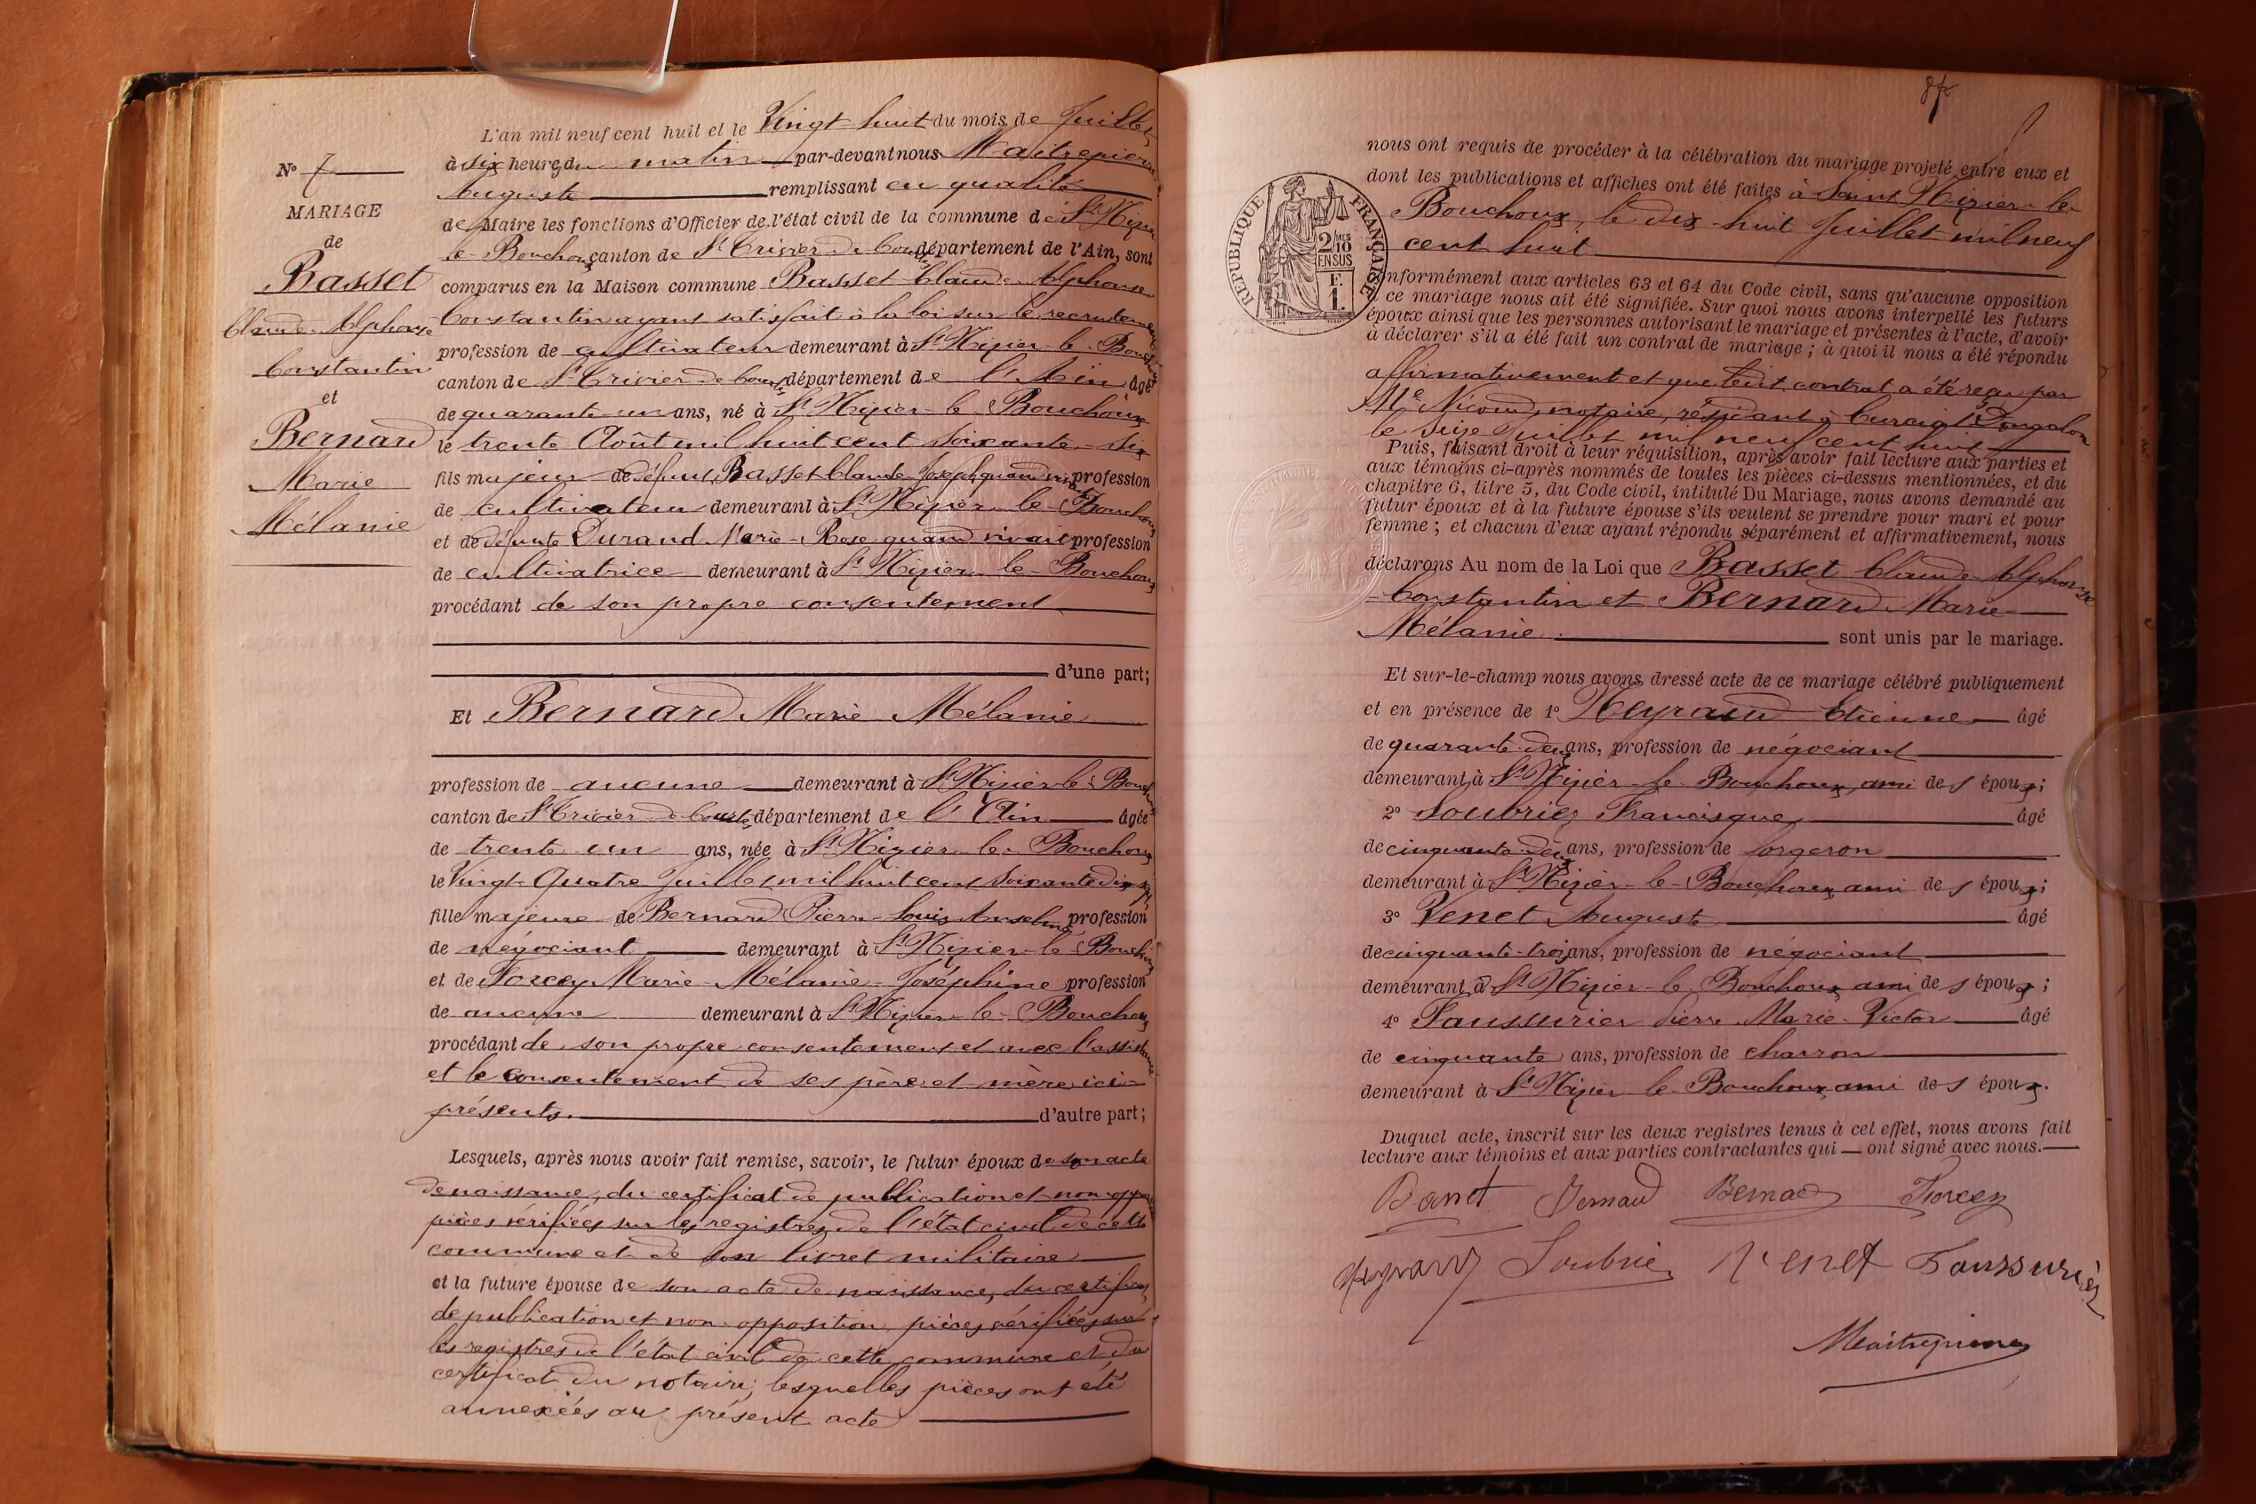 L'an mil neuf cent huit et le Vingt huit du mois de Juillet
à six heures du matin par-devant nous Maitrepierre
Auguste remplissant en qualité
de Maire les fonctions d'Officier de l'état civil de la commune de St Nizier
le Bouchoux canton de St Trivier de Courtes département de l'Ain, sont
comparus en la Maison commune Basset Claude Alphonse
Constantin ayant satisfait à la loi sur le recrutement
profession de cultivateur demeurant à St Nizier le Bouchoux
canton de St Trivier de Courtes département de l'Ain âgé
de quarante un ans, né à St Nizier le Bouchoux
le trente Août mil huit cent soixante-six
fils majeur de défunt Basset Claude Joseph quand vivait profession
de cultivateur demeurant à St Nizier le Bouchoux
et de défunte Durand Marie-Rose quand vivait profession
de cultivatrice demeurant à St Nizier le Bouchoux
procédant de son propre consentement
d'une part;
Et Bernard Marie Mélanie
profession de aucune demeurant à St Nizier le Bouchoux
canton de St Trivier de Courtes département de l'Ain âgée
de trente un ans, née à St Nizier le Bouchoux
le Vingt-Quatre Juillet mil huit cent soixante dix sept
fille majeure de Bernard Pierre Louis Anselme profession
de négociant demeurant à St Nizier le Bouchoux
et de Forcey Marie Mélanie Joséphine profession
de aucune demeurant à St Nizier le Bouchoux
procédant de son propre consentement et avec l'assistance
et le consentement de ses père et mère ici
présents. d'autre part;
Lesquels, après nous avoir fait remise, savoir, le futur époux de son acte
de naissance, du certificat de publication et non opposition
pièces vérifiées sur les registres de l'état civil de cette
commune et de son livret militaire
et la future épouse de son acte de naissance, du certificat
de publication et non opposition, pièces vérifiées sur
les registres de l'état civil de cette commune et du
certificat du notaire, lesquelles pièces ont été
annexées au présent acte
No 7
MARIAGE
de
Basset
Claude Alphonse
Constantin
et
Bernard
Marie
Mélanie
nous ont requis de procéder à la célébration du mariage projeté entre eux et
dont les publications et affiches ont été faites à Saint Nizier-le-
Bouchoux, le dix huit Juillet mil neuf
cent huit
conformément aux articles 63 et 64 du Code civil, sans qu'aucune opposition
à ce mariage nous ait été signifiée. Sur quoi nous avons interpellé les futurs
époux ainsi que les personnes autorisant le mariage et présentes à l'acte, d'avoir
à déclarer s'il a été fait un contrat de mariage; à quoi il nous a été répondu
affirmativement et que ledit contrat a été reçu par
Me Nicoud, notaire, résidant à Curciat-Dongalon
le seize Juillet mil neuf cent huit
Puis, faisant droit à leur réquisition, après avoir fait lecture aux parties et
aux témoins ci-après nommés de toutes les pièces ci-dessus mentionnées, et du
chapitre 6, titre 5, du Code civil, intitulé Du Mariage, nous avons demandé au
futur époux et à la future épouse s'ils veulent se prendre pour mari et pour
femme; et chacun d'eux ayant répondu séparément et affirmativement, nous
déclarons Au nom de la Loi que Basset Claude Alphonse
Constantin et Bernard Marie
Mélanie sont unis par le mariage.
Et sur-le-champ nous avons dressé acte de ce mariage célébré publiquement
et en présence de 1o Neyraud Etienne âgé
de quarante-deux ans, profession de négociant
demeurant à St Nizier-le-Bouchoux, ami des époux;
2o Soubrier Francisque âgé
de cinquante-deux ans, profession de forgeron
demeurant à St Nizier-le-Bouchoux ami des époux;
3o Venet Auguste âgé
de cinquante-trois ans, profession de négociant
demeurant à St Nizier-le-Bouchoux ami des époux;
4o Faussurier Pierre Marie-Victor âgé
de cinquante ans, profession de charron
demeurant à St Nizier le Bouchoux, ami des époux.
Duquel acte, inscrit sur les deux registres tenus à cet effet, nous avons fait
lecture aux témoins et aux parties contractantes qui ont signé avec nous.
Basset Bernard Bernard Forcey
Neyraud Soubrier Venet Faussurier
Maitrepierre
RÉPUBLIQUE FRANÇAISE
2/10 EN SUS
F. 1.